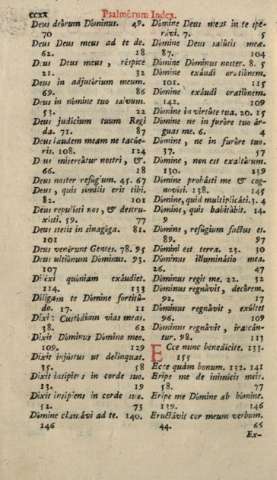 ccxx
Psalmórum Index.
Deus deórum Dóminus. 49.
70
Deus Deus meus ad te de.
62. 18
Deus Deus meus, réspice
21. 32
Deus in adjutórium meum.
69. 86
Deus in nómine tuo salvum.
53. 22
Deus judícium tuum Regi
da. 71. 87
Deus laudem meam ne tacúe-
ris. 108. 124
Deus misereátur nostri, &.
66. 18
Deus noster refúgium. 45. 67
Deus, quis símilis erit tibi.
82. 101
Deus repulísti nos, & destru-
xísti. 59. 77
Deus stetit in sinagóga. 81.
101
Deus venérunt Gentes. 78. 95
Deus ultiónum Dóminus. 93.
107
Diléxi quóniam exáudiet.
114. 133
Díligam te Dómine fortitú-
do. 17. 11
Dixi: Custódiam vias meas.
38. 62
Dixit Dóminus Dómino meo.
109. 129
Dixit injústus ut delínquat.
35. 58
Dixit insípiens in corde suo.
13. 19
Dixit insípiens in corde suo.
52. 75
Dómine clamávi ad te. 140.
146
Dómine Deus meus in te spe-
rávi. 7. 5
Dómine Deus salútis meæ.
87. 104
Dómine Dóminus noster. 8. 5
Dómine exáudi oratiónem.
101. 115
Dómine exáudi oratiónem.
142. 109
Dómine in virtúte tua. 20. 15
Dómine ne in furóre tuo ár-
guas me. 6. 4
Dómine, ne in furóre tuo.
37. 57
Dómine, non est exaltátum.
130. 139
Dómine probásti me & cog-
novísti. 138. 145
Dómine, quid multiplicáti. 3. 4
Dómine, quis habitábit. 14.
Dómine, refúgium factus es.
89. 97
Dómini est terra. 23. 30
Dóminus illuminátio mea.
26. 47
Dóminus regit me. 22. 32
Dóminus regnávit, decórem.
92. 17
Dóminus regnávit, exúltet
96. 109
Dóminus regnávit, irascán-
tur. 98. 113
Ecce nunc benedícite. 133.
155
Ecce quàm bonum. 132. 141
Eripe me de inimícis meis.
58. 77
Eripe me Dómine ab hómine.
139. 146
Eructávit cor meum verbum.
44. 65
Ex-